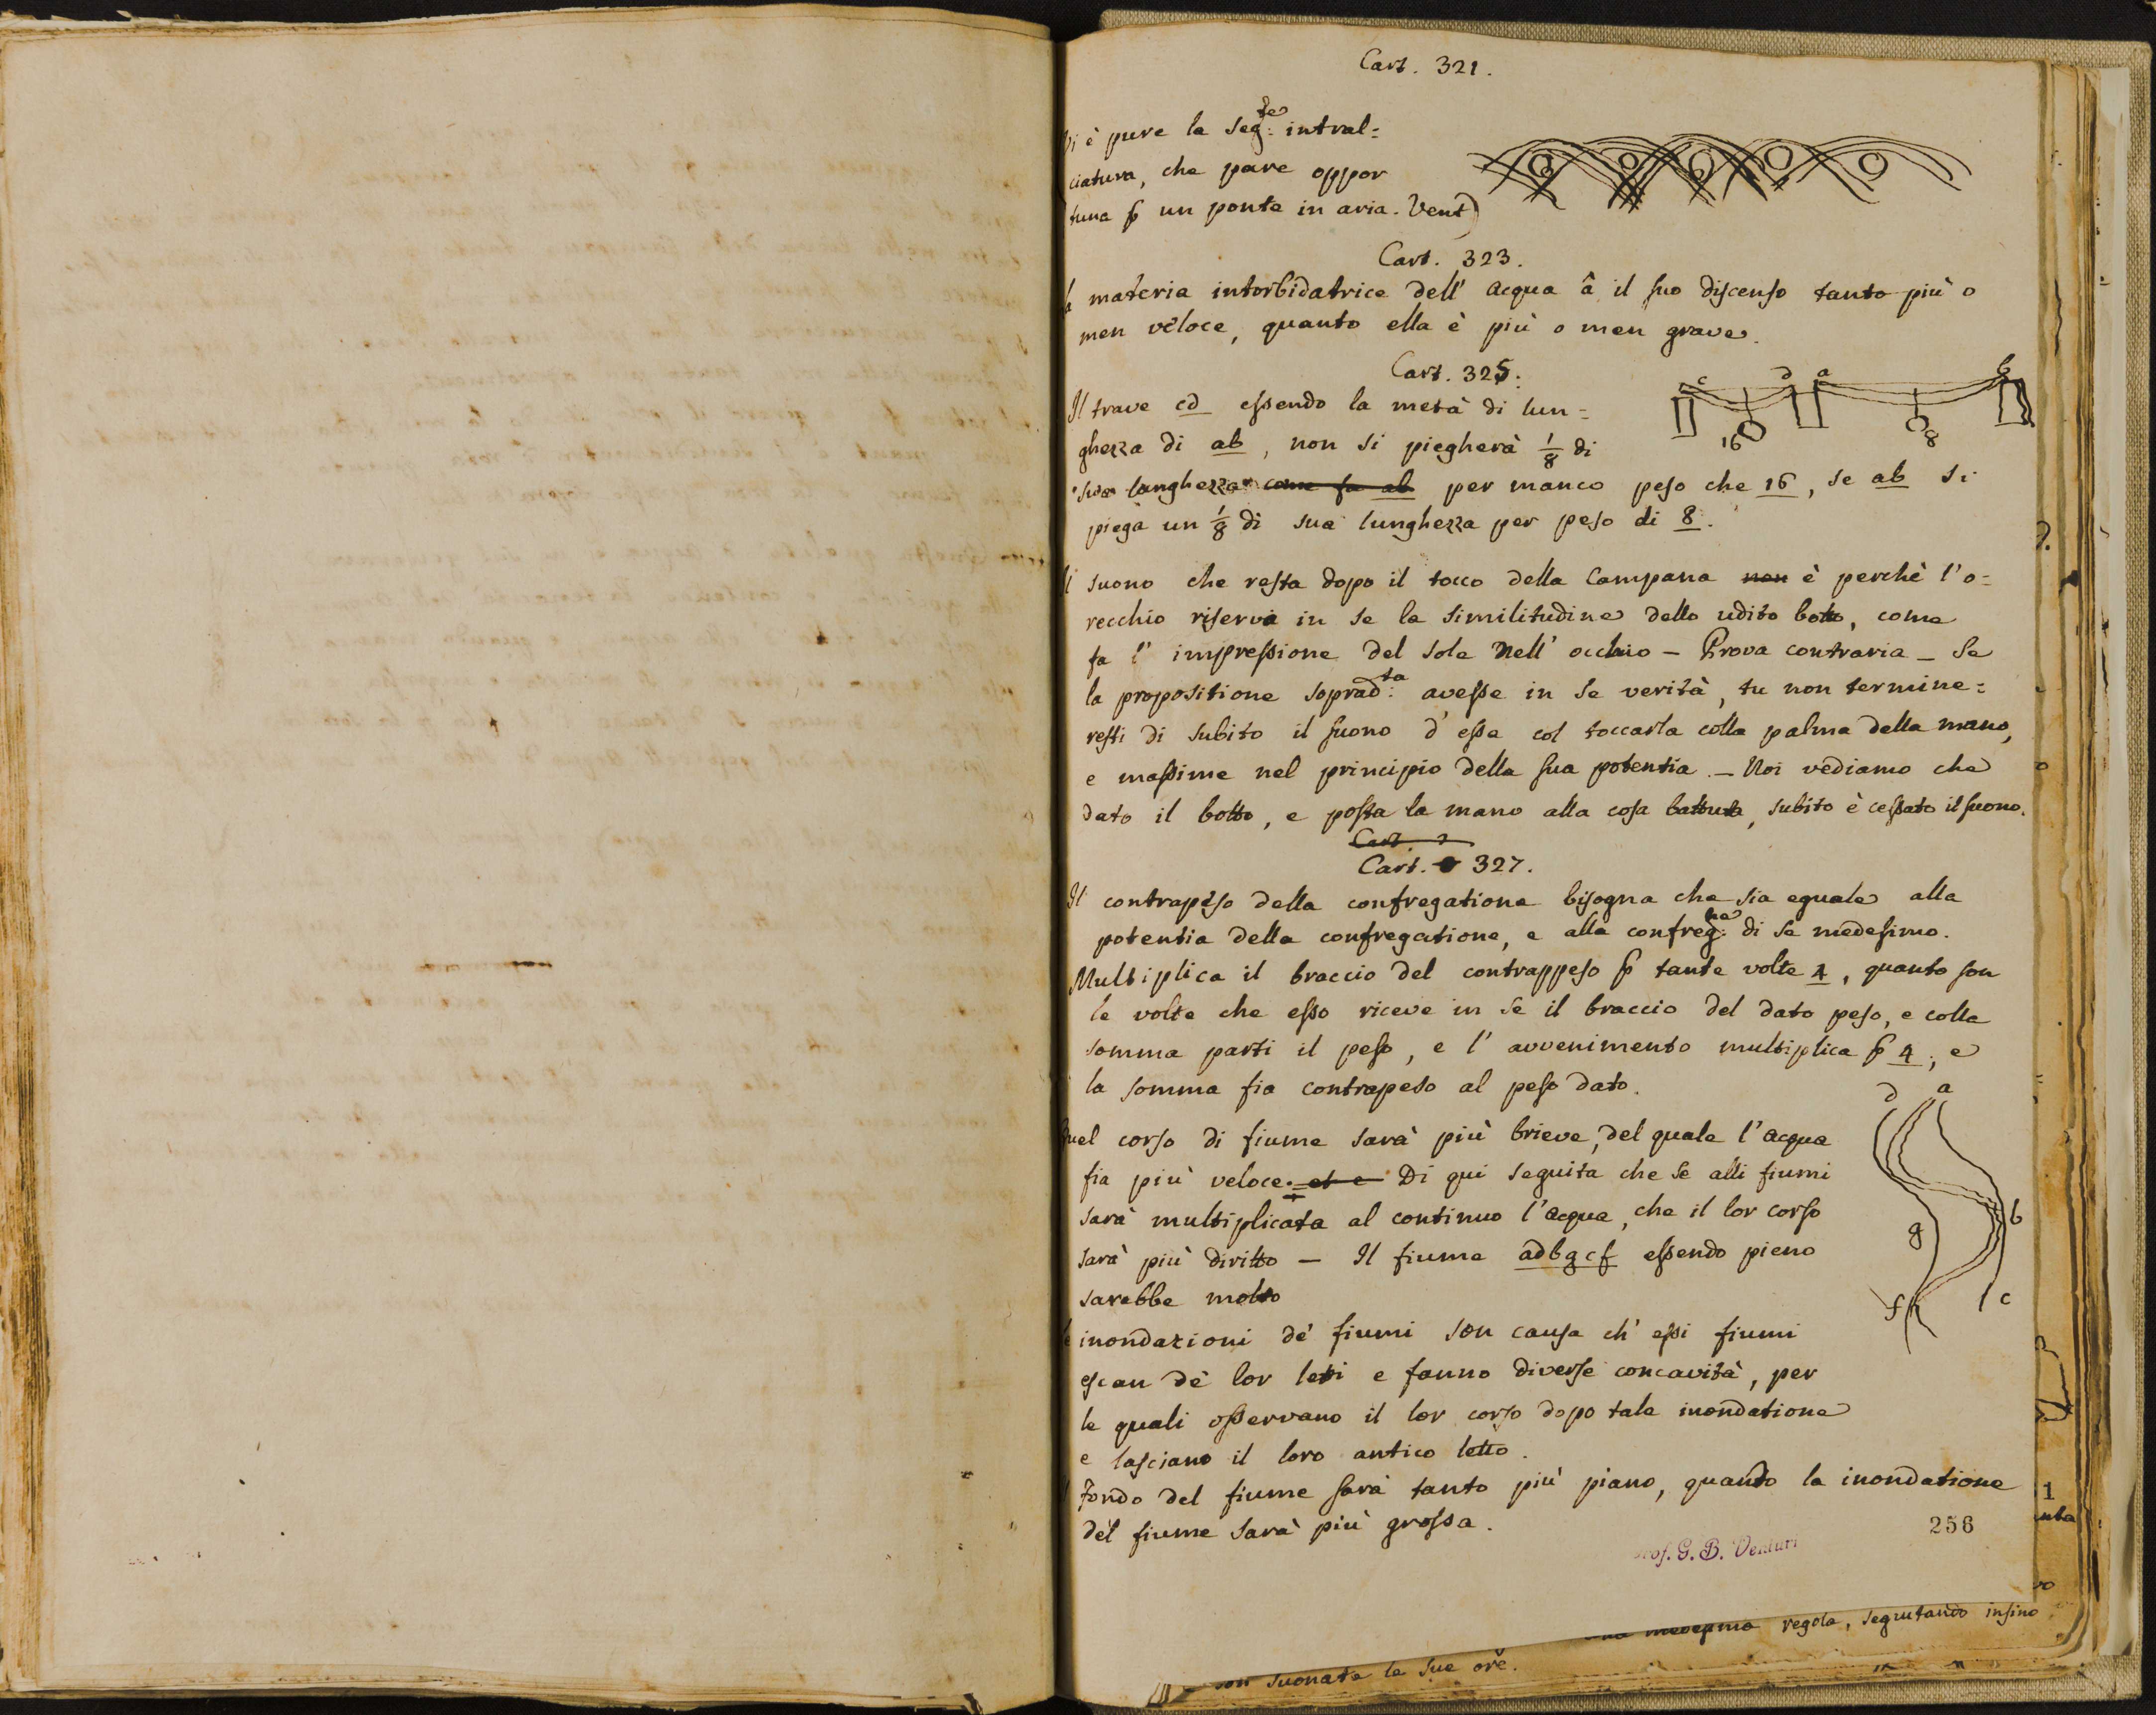 Cart. 321.
Vi è pure la seg:te intral=
ciatura, che pare oppor
tuna p un ponte in aria. Vent)
Cart. 323.
La materia intorbidatrice dell' acqua â il suo discenso tanto più o
men veloce, quanto ella è più o men grave.
Cart. 325.
c d a b
Il trave cd essendo la metà di lun=
16 8
ghezza di ab, non si piegherà 1/8 di
sua lunghezza come fa ab per manco peso che 16, se ab si
piega un 1/8 di sua lunghezza per peso di 8.
Il suono che resta dopo il tocco della Campana non è perchè l'o=
recchio riserva in se la similitudine dello udito botto, come
fa l' impressione del sole nell' occhio – Prova contraria – Se
la propositione soprad:ta avesse in se verità, tu non termine=
resti di subito il suono d' essa col toccarla colla palma della mano,
e massime nel principio della sua potentia. – Noi vediamo che
dato il botto, e posta la mano alla cosa battuta, subito è cessato il suono.
Cart.
Cart. 327.
Il contrapeso della confregatione bisogna che sia eguale alla
potentia della confregatione, e alla confreg:ne di se medesimo.
Multiplica il braccio del contrappeso p tante volte 4, quanto son
le volte che esso riceve in se il braccio del dato peso, e colla
somma parti il peso, e l' avvenimento multiplica p 4, e
la somma fia contrapeso al peso dato.
d a
Quel corso di fiume sarà più brieve, del quale l'acqua
fia più veloce. et e Di qui seguita che se alli fiumi
sarà multiplicata al continuo l'acqua, che il lor corso
b
g
sarà più diritto – Il fiume adbgcf essendo pieno
sarebbe molto
f c
Le inondazioni de' fiumi son causa ch' essi fiumi
escan de' lor letti e fanno diverse concavità, per
le quali osservano il lor corso dopo tale inondatione
e lasciano il loro antico letto.
Il fondo del fiume sarà tanto più piano, quanto la inondatione
del fiume sarà più grossa.
256
Prof. G. B. Venturi
medesima regola, seguitando insino
son suonate le sue ore.